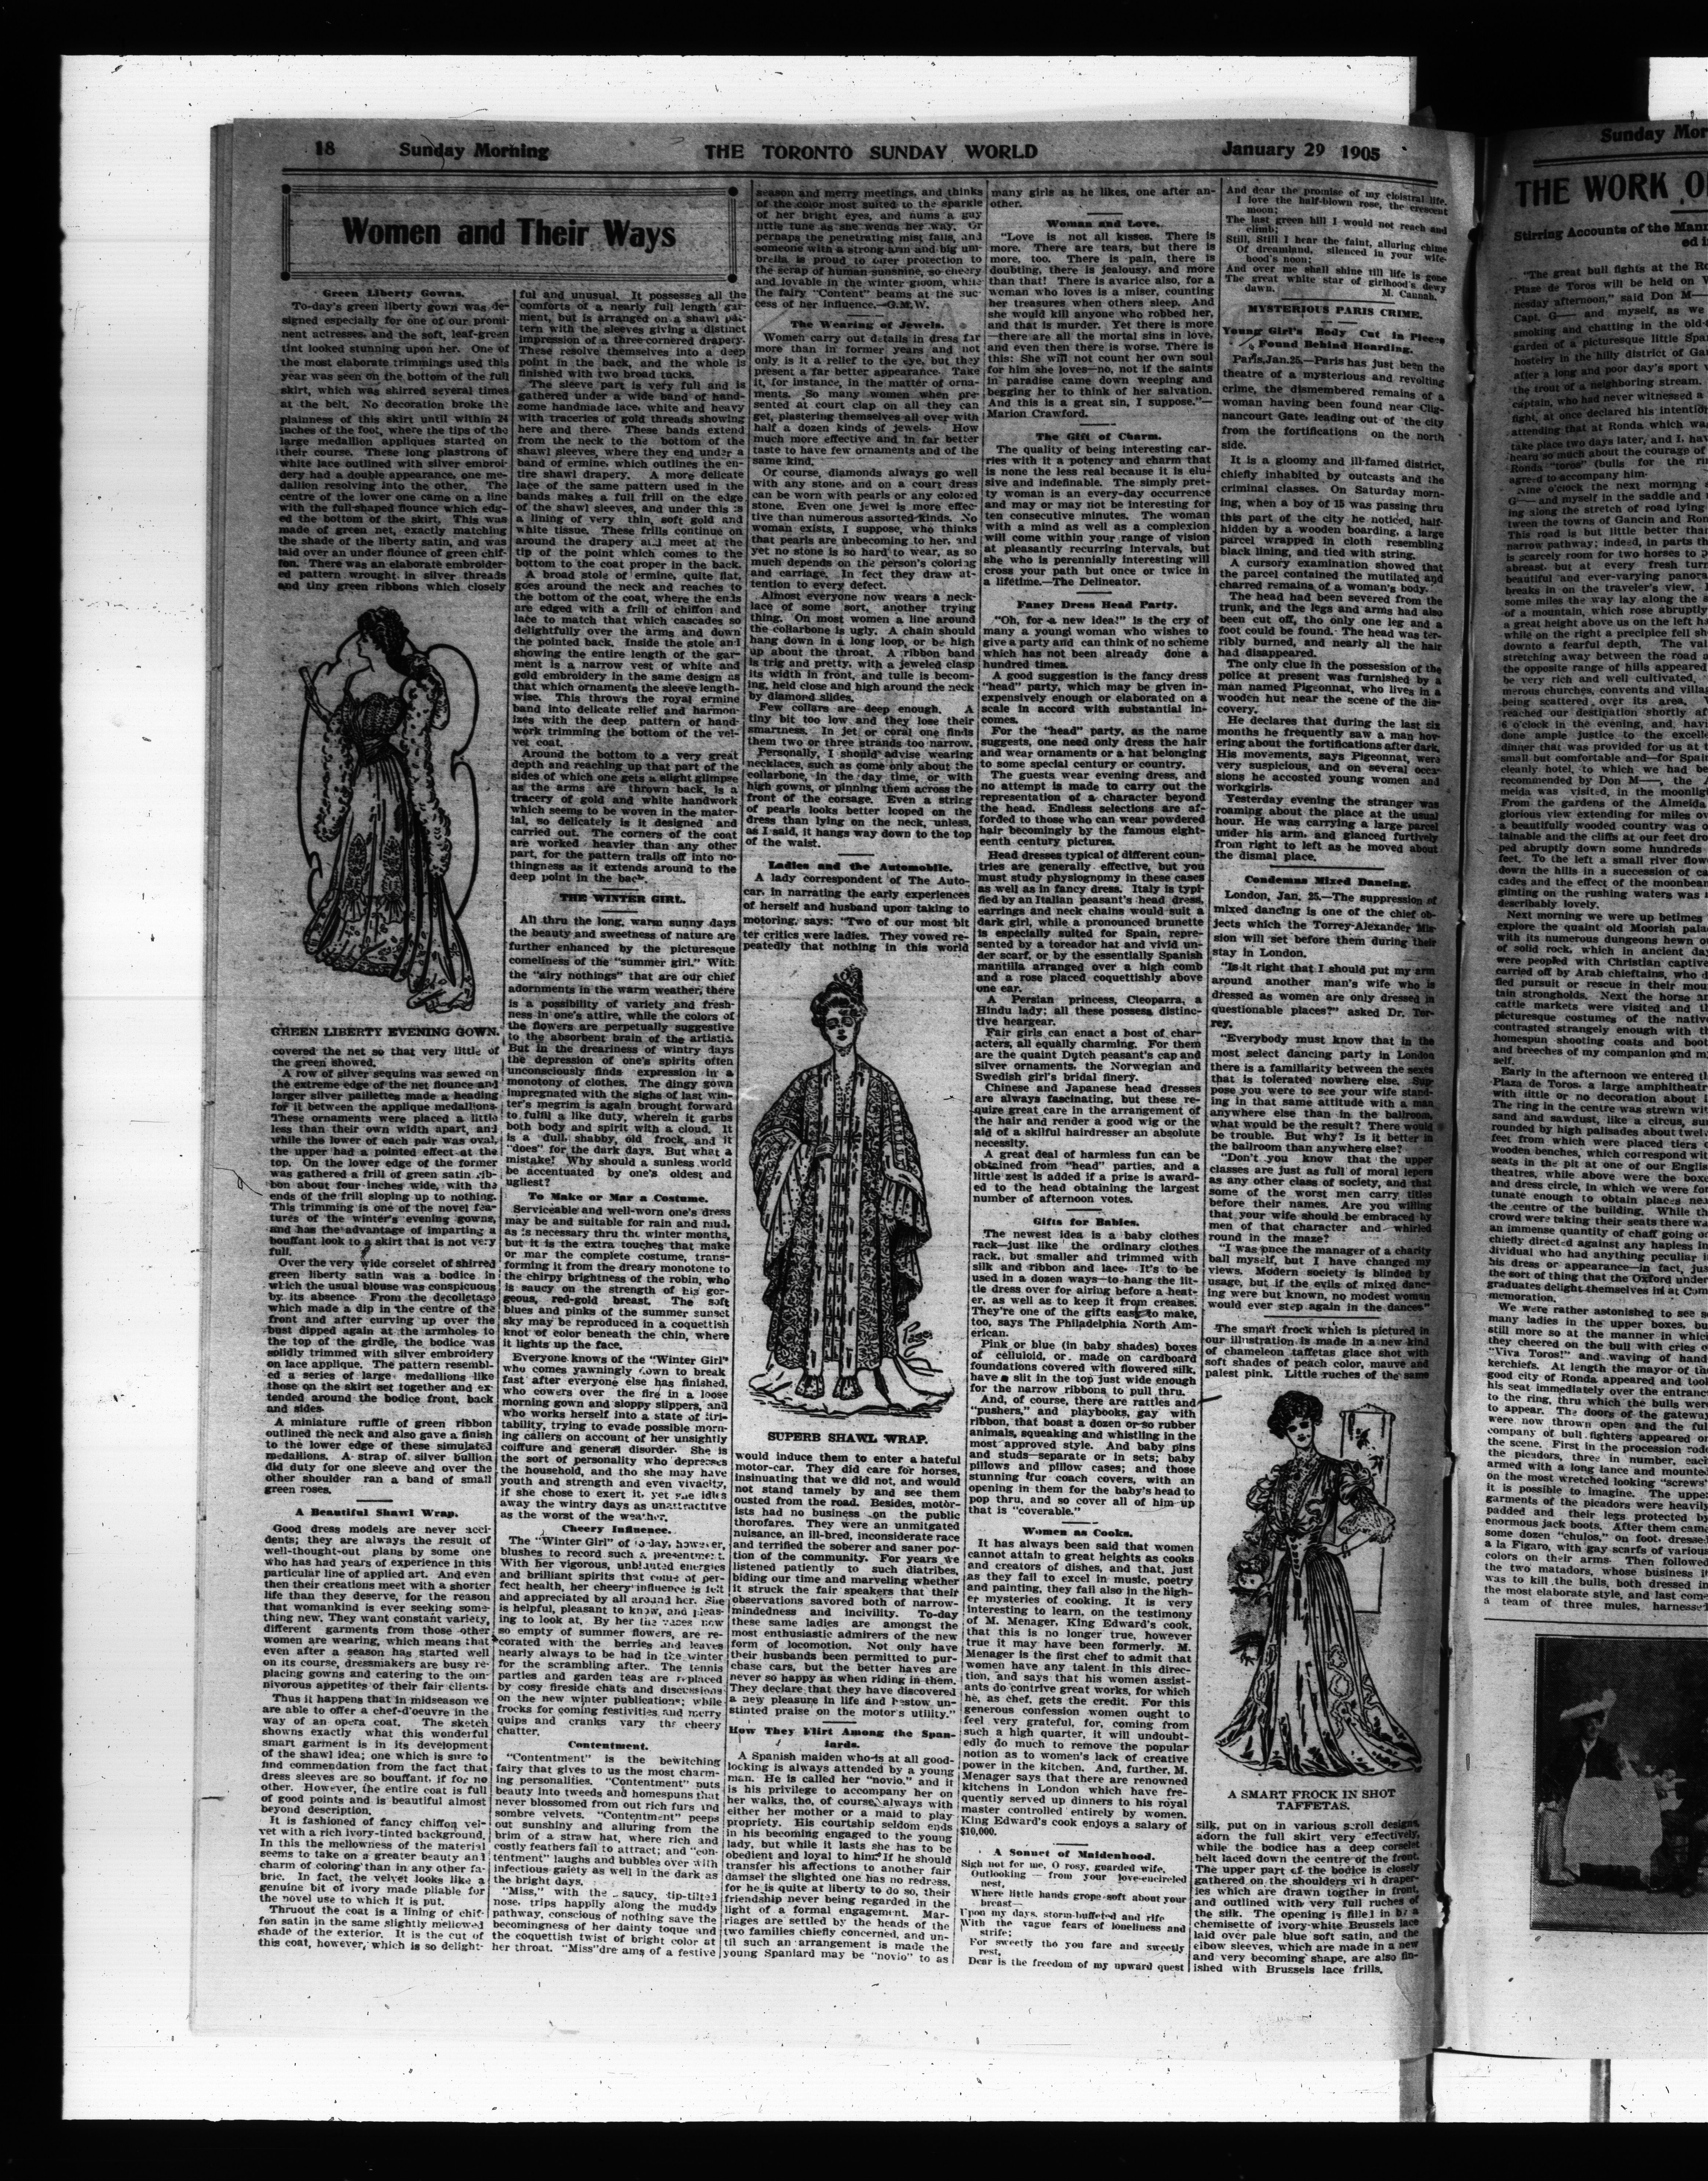 18 Sunday Morning THE TORONTO SUNDAY WORLD January 29 1905
Women and Their Ways
Green Liberty Gowns.
To-day's green liberty gown was de-
signed especially for one of our promi-
nent actresses, and the soft, leaf-green
tint looked stunning upon her. One of
the most elaborate trimmings used this
year was seen on the bottom of the full
skirt, which was shirred several times
at the belt. No decoration broke the
plainness of this skirt until within 24
inches of the foot, where the tips of the
large medallion appliques started on
their course. These long plastrons of
white lace outlined with silver embroi-
dery had a double appearance, one me-
dallion resolving into the other. The
centre of the lower one came on a line
with the full-shaped flounce which edg-
ed the bottom of the skirt. This was
made of green net, exactly matching
the shade of the liberty satin, and was
laid over an under flounce of green chif-
fon. There was an elaborate embroider-
ed pattern wrought in silver threads
and tiny green ribbons which closely
GREEN LIBERTY EVENING GOWN.
covered the net so that very little of
the green showed.
A row of silver sequins was sewed on
the extreme edge of the net flounce and
larger silver paillettes made a heading
for it between the applique medallions.
These ornaments were placed a little
less than their own width apart, and
while the lower of each pair was oval,
the upper had a pointed effect at the
top. On the lower edge of the former
was gathered a frill of green satin rib-
bon about four inches wide, with the
ends of the frill sloping up to nothing.
This trimming is one of the novel fea-
tures of the winter's evening gowns,
and has the advantage of imparting a
bouffant look to a skirt that is not very
full.
Over the very wide corselet of shirred
green liberty satin was a bodice in
which the usual blouse was conspicuous
by its absence. From the decolletage
which made a dip in the centre of the
front and after curving up over the
bust dipped again at the armholes to
the top of the girdle, the bodice was
solidly trimmed with silver embroidery
on lace applique. The pattern resembl-
ed a series of large medallions like
those on the skirt set together and ex-
tended around the bodice front, back
and sides.
A miniature ruffle of green ribbon
outlined the neck and also gave a finish
to the lower edge of these simulated
medallions. A strap of silver bullion
did duty for one sleeve and over the
other shoulder ran a band of small
green roses.
A Beautiful Shawl Wrap.
Good dress models are never acci-
dents; they are always the result of
well-thought-out plans by some one
who has had years of experience in this
particular line of applied art. And even
then their creations meet with a shorter
life than they deserve, for the reason
that womankind is ever seeking some-
thing new. They want constant variety,
different garments from those other
women are wearing, which means that
even after a season has started well
on its course, dressmakers are busy re-
placing gowns and catering to the om-
nivorous appetites of their fair clients.
Thus it happens that in midseason we
are able to offer a chef-d'oeuvre in the
way of an opera coat. The sketch
showns exactly what this wonderful
smart garment is in its development
of the shawl idea; one which is sure to
find commendation from the fact that
dress sleeves are so bouffant, if for no
other. However, the entire coat is full
of good points and is beautiful almost
beyond description.
It is fashioned of fancy chiffon vel-
vet with a rich ivory-tinted background.
In this the mellowness of the material
seems to take on a greater beauty and
charm of coloring than in any other fa-
bric. In fact, the velvet looks like a
genuine bit of ivory made pliable for
the novel use to which it is put.
Thruout the coat is a lining of chif-
fon satin in the same slightly mellowed
shade of the exterior. It is the cut of
this coat, however, which is so delight-
ful and unusual. It possesses all the
comforts of a nearly full length gar-
ment, but is arranged on a shawl pat-
tern with the sleeves giving a distinct
impression of a three-cornered drapery.
These resolve themselves into a deep
point in the back, and the whole is
finished with two broad tucks.
The sleeve part is very full and is
gathered under a wide band of hand-
some handmade lace, white and heavy
with traceries of gold threads showing
here and there. These bands extend
from the neck to the bottom of the
shawl sleeves, where they end under a
band of ermine, which outlines the en-
tire shawl drapery. A more delicate
lace of the same pattern used in the
bands makes a full frill on the edge
of the shawl sleeves, and under this is
a lining of very thin, soft gold and
white tissue. These frills continue on
around the drapery and meet at the
tip of the point which comes to the
bottom to the coat proper in the back.
A broad stole of ermine, quite flat,
goes around the neck and reaches to
the bottom of the coat, where the ends
are edged with a frill of chiffon and
lace to match that which cascades so
delightfully over the arms and down
the pointed back. Inside the stole and
showing the entire length of the gar-
ment is a narrow vest of white and
gold embroidery in the same design as
that which ornaments the sleeve length-
wise. This throws the royal ermine
band into delicate relief and harmon-
izes with the deep pattern of hand-
work trimming the bottom of the vel-
vet coat.
Around the bottom to a very great
depth and reaching up that part of the
sides of which one gets a slight glimpse
as the arms are thrown back, is a
tracery of gold and white handwork
which seems to be woven in the mater-
ial, so delicately is it designed and
carried out. The corners of the coat
are worked heavier than any other
part, for the pattern trails off into no-
thingness as it extends around to the
deep point in the back.
THE WINTER GIRL.
All thru the long, warm sunny days
the beauty and sweetness of nature are
further enhanced by the picturesque
comeliness of the "summer girl." With
the "airy nothings" that are our chief
adornments in the warm weather, there
is a possibility of variety and fresh-
ness in one's attire, while the colors of
the flowers are perpetually suggestive
to the absorbent brain of the artistic.
But in the dreariness of wintry days
the depression of one's spirits often
unconsciously finds expression in a
monotony of clothes. The dingy gown
impregnated with the sighs of last win-
ter's megrim is again brought forward
to fulfil a like duty, wherein it garbs
both body and spirit with a cloud. It
is a "dull, shabby, old frock, and it
"does" for the dark days. But what a
mistake! Why should a sunless world
be accentuated by one's oldest and
ugliest?
To Make or Mar a Costume.
Serviceable and well-worn one's dress
may be and suitable for rain and mud,
as is necessary thru the winter months,
but it is the extra touches that make
or mar the complete costume, trans-
forming it from the dreary monotone to
the chirpy brightness of the robin, who
is saucy on the strength of his gor-
geous, red-gold breast. The soft
blues and pinks of the summer sunset
sky may be reproduced in a coquettish
knot of color beneath the chin, where
it lights up the face.
Everyone knows of the "Winter Girl"
who comes yawningly down to break
fast after everyone else has finished,
who cowers over the fire in a loose
morning gown and sloppy slippers, and
who works herself into a state of irri-
tability, trying to evade possible morn-
ing callers on account of her unsightly
coiffure and general disorder. She is
the sort of personality who depresses
the household, and tho she may have
youth and strength and even vivacity,
if she chose to exert it, yet she idles
away the wintry days as unattractive
as the worst of the weather.
Cheery Influence.
The "Winter Girl" of to-day, however,
blushes to record such a presentment.
With her vigorous, unblunted energies
and brilliant spirits that come of per-
fect health, her cheery influence is felt
and appreciated by all around her. She
is helpful, pleasant to know, and pleas-
ing to look at. By her the vases now
so empty of summer flowers, are re-
corated with the berries and leaves
nearly always to be had in the winter
for the scrambling after. The tennis
parties and garden teas are replaced
by cosy fireside chats and discussions
on the new winter publications; while
frocks for coming festivities and merry
quips and cranks vary the cheery
chatter.
Contentment.
"Contentment" is the bewitching
fairy that gives to us the most charm-
ing personalities. "Contentment" puts
beauty into tweeds and homespuns that
never blossomed from out rich furs and
sombre velvets. "Contentment" peeps
out sunshiny and alluring from the
brim of a straw hat, where rich and
costly feathers fail to attract; and "con-
tentment" laughs and bubbles over with
infectious gaiety as well in the dark as
the bright days.
"Miss," with the saucy, tip-tilted
nose, trips happily along the muddy
pathway, conscious of nothing save the
becomingness of her dainty toque and
the coquettish twist of bright color at
her throat. "Miss"dre ams of a festive
season and merry meetings, and thinks
of the color most suited to the sparkle
of her bright eyes, and hums a gay
little tune as she wends her way. Or
perhaps the penetrating mist falls, and
someone with a strong arm and big um-
brella is proud to offer protection to
the scrap of human sunshine, so cheery
and lovable in the winter gloom, while
the fairy "Content" beams at the suc-
cess of her influence.—G.M.W.
The Wearing of Jewels.
Women carry out details in dress far
more than in former years and not
only is it a relief to the eye, but they
present a far better appearance. Take
it, for instance, in the matter of orna-
ments. So many women when pre-
sented at court clap on all they can
get, plastering themselves all over with
half a dozen kinds of jewels. How
much more effective and in far better
taste to have few ornaments and of the
same kind.
Of course, diamonds always go well
with any stone, and on a court dress
can be worn with pearls or any colored
stone. Even one jewel is more effec-
tive than numerous assorted kinds. No
woman exists, I suppose, who thinks
that pearls are unbecoming to her, and
yet no stone is so hard to wear, as so
much depends on the person's coloring
and carriage. In fect they draw at-
tention to every defect.
Almost everyone now wears a neck-
lace of some sort, another trying
thing. On most women a line around
the collarbone is ugly. A chain should
hang down in a long loop, or be high
up about the throat. A ribbon band
is trig and pretty, with a jeweled clasp
its width in front, and tulle is becom-
ing, held close and high around the neck
by diamond slides.
Few collars are deep enough. A
tiny bit too low and they lose their
smartness. In jet or coral one finds
them two or three strands too narrow.
Personally, I should advise wearing
necklaces, such as come only about the
collarbone, in the day time, or with
high gowns, or pinning them across the
front of the corsage. Even a string
of pearls looks better looped on the
dress than lying on the neck, unless,
as I said, it hangs way down to the top
of the waist.
Ladies and the Automobile.
A lady correspondent of The Auto-
car, in narrating the early experiences
of herself and husband upon taking to
motoring, says: "Two of our most bit
ter critics were ladies. They vowed re-
peatedly that nothing in this world
SUPERB SHAWL WRAP.
would induce them to enter a hateful
motor-car. They did care for horses,
insinuating that we did not, and would
not stand tamely by and see them
ousted from the road. Besides, motor-
ists had no business on the public
thorofares. They were an unmitgated
nuisance, an ill-bred, inconsiderate race
and terrified the soberer and saner por-
tion of the community. For years we
listened patiently to such diatribes,
biding our time and marveling whether
it struck the fair speakers that their
observations savored both of narrow-
mindedness and incivility. To-day
these same ladies are amongst the
most enthusiastic admirers of the new
form of locomotion. Not only have
their husbands been permitted to pur-
chase cars, but the better haves are
never so happy as when riding in them.
They declare that they have discovered
a new pleasure in life and bestow un-
stinted praise on the motor's utility."
How They Flirt Among the Span-
iards.
A Spanish maiden who is at all good-
looking is always attended by a young
man. He is called her "novio," and it
is his privilege to accompany her on
her walks, tho, of course, always with
either her mother or a maid to play
propriety. His courtship seldom ends
in his becoming engaged to the young
lady, but while it lasts she has to be
obedient and loyal to him. If he should
transfer his affections to another fair
damsel the slighted one has no redress,
for he is quite at liberty to do so, their
friendship never being regarded in the
light of a formal engagement. Mar-
riages are settled by the heads of the
two families chiefly concerned, and un-
til such an arrangement is made the
young Spaniard may be "novio" to as
many girls as he likes, one after an-
other.
Woman and Love.
"Love is not all kisses. There is
more. There are tears, but there is
more, too. There is pain, there is
doubting, there is jealousy, and more
than that! There is avarice also, for a
woman who loves is a miser, counting
her treasures when others sleep. And
she would kill anyone who robbed her,
and that is murder. Yet there is more
—there are all the mortal sins in love,
and even then there is worse. There is
this: She will not count her own soul
for him she loves—no, not if the saints
in paradise came down weeping and
begging her to think of her salvation.
And this is a great sin, I suppose."—
Marion Crawford.
The Gift of Charm.
The quality of being interesting car-
ries with it a potency and charm that
is none the less real because it is elu-
sive and indefinable. The simply pret-
ty woman is an every-day occurrence
and may or may not be interesting for
ten consecutive minutes. The woman
with a mind as well as a complexion
will come within your range of vision
at pleasantly recurring intervals, but
she who is perennially interesting will
cross your path but once or twice in
a lifetime.—The Delineator.
Fancy Dress Head Party.
"Oh, for a new idea!" is the cry of
many a young woman who wishes to
give a party and can think of no scheme
which has not been already done a
hundred times.
A good suggestion is the fancy dress
"head" party, which may be given in-
expensively enough or elaborated on a
scale in accord with substantial in-
comes.
For the "head" party, as the name
suggests, one need only dress the hair
and wear ornaments or a hat belonging
to some special century or country.
The guests wear evening dress, and
no attempt is made to carry out the
representation of a character beyond
the head. Endless selections are af-
forded to those who can wear powdered
hair becomingly by the famous eight-
eenth century pictures.
Head dresses typical of different coun-
tries are generally effective, but you
must study physiognomy in these cases
as well as in fancy dress. Italy is typi-
fied by an Italian peasant's head dress,
earrings and neck chains would suit a
dark girl, while a pronounced brunette
is especially suited for Spain, repre-
sented by a toreador hat and vivid un-
der scarf, or by the essentially Spanish
mantilla arranged over a high comb
and a rose placed coquettishly above
one ear.
A Persian princess, Cleoparra, a
Hindu lady; all these possess distinc-
tive heargear.
Fair girls can enact a host of char-
acters, all equally charming. For them
are the quaint Dytch peasant's cap and
silver ornaments, the Norwegian and
Swedish girl's bridal finery.
Chinese and Japanese head dresses
are always fascinating, but these re-
quire great care in the arrangement of
the hair and render a good wig or the
aid of a skilful hairdresser an absolute
necessity.
A great deal of harmless fun can be
obtained from "head" parties, and a
little zest is added if a prize is award-
ed to the head obtaining the largest
number of afternoon votes.
Gifts for Babies.
The newest idea is a baby clothes
rack—just like the ordinary clothes
rack, but smaller and trimmed with
silk and ribbon and lace. It's to be
used in a dozen ways—to hang the lit-
tle dress over for airing before a heat-
er, as well as to keep it from creases.
They're one of the gifts easy to make,
too, says The Philadelphia North Am-
erican.
Pink or blue (in baby shades) boxes
of celluloid, or made on cardboard
foundations covered with flowered silk,
have a slit in the top just wide enough
for the narrow ribbons to pull thru.
And, of course, there are rattles and
"pushers," and playbooks, gay with
ribbon, that boast a dozen or so rubber
animals, squeaking and whistling in the
most approved style. And baby pins
and studs—separate or in sets; baby
pillows and pillow cases; and those
stunning fur coach covers, with an
opening in them for the baby's head to
pop thru, and so cover all of him up
that is "coverable."
Women as Cooks.
It has always been said that women
cannot attain to great heights as cooks
and creators of dishes, and that, just
as they fail to excel in music, poetry
and painting, they fail also in the high-
er mysteries of cooking. It is very
interesting to learn, on the testimony
of M. Menager, King Edward's cook,
that this is no longer true, however
true it may have been formerly. M.
Menager is the first chef to admit that
women have any talent in this direc-
tion, and says that his women assist-
ants do contrive great works, for which
he, as chef, gets the credit. For this
generous confession women ought to
feel very grateful, for, coming from
such a high quarter, it will undoubt-
edly do much to remove the popular
notion as to women's lack of creative
power in the kitchen. And, further, M.
Menager says that there are renowned
kitchens in London which have fre-
quently served up dinners to his royal
master controlled entirely by women.
King Edward's cook enjoys a salary of
$10,000.
A Sonnet of Maidenhood.
Sigh not for me, O rosy, guarded wife,
Outlooking — from your love-encircled
nest,
Where little hands grope soft about your
breast—
Upon my days, storm-buffeted and rife
With the vague fears of loneliness and
strife;
For sweetly tho you fare and sweetly
rest,
Dear is the freedom of my upward quest
And dear the promise of my cloistral life.
I love the half-blown rose, the crescent
moon;
The last green hill I would not reach and
climb;
Still, Still I hear the faint, alluring chime
Of dreamland, silenced in your wife-
hood's noon;
And over me shall shine till life is gone
The great white star of girlhood's dewy
dawn.
M. Cannah.
MYSTERIOUS PARIS CRIME.
Young Girl's Body Cut in Pieces
Found Behind Hoarding.
Paris,Jan.25.—Paris has just been the
theatre of a mysterious and revolting
crime, the dismembered remains of a
woman having been found near Clig-
nancourt Gate, leading out of the city
from the fortifications on the north
side.
It is a gloomy and ill-famed district,
chiefly inhabited by outcasts and the
criminal classes. On Saturday morn-
ing, when a boy of 15 was passing thru
this part of the city he noticed, half-
hidden by a wooden boarding, a large
parcel wrapped in cloth resembling
black lining, and tied with string.
A cursory examination showed that
the parcel contained the mutilated and
charred remains of a woman's body.
The head had been severed from the
trunk, and the legs and arms had also
been cut off, tho only one leg and a
foot could be found. The head was ter-
ribly burned, and nearly all the hair
had disappeared.
The only clue in the possession of the
police at present was furnished by a
man named Pigeonnat, who lives in a
wooden hut near the scene of the dis-
covery.
He declares that during the last six
months he frequently saw a man hov-
ering about the fortifications after dark.
His movements, says Pigeonnat, were
very suspicious, and on several occa-
sions he accosted young women and
workgirls.
Yesterday evening the stranger was
roaming about the place at the usual
hour. He was carrying a large parcel
under his arm, and glanced furtively
from right to left as he moved about
the dismal place.
Condemns Mixed Dancing.
London, Jan. 25.—The suppression of
mixed dancing is one of the chief ob-
jects which the Torrey-Alexander Mis-
sion will set before them during their
stay in London.
"Is it right that I should put my arm
around another man's wife who is
dressed as women are only dressed in
questionable places?" asked Dr. Tor-
rey.
"Everybody must know that in the
most select dancing party in London
there is a familiarity between the sexes
that is tolerated nowhere else. Sup
pose you were to see your wife stand-
ing in that same attitude with a man
anywhere else than in the ballroom,
what would be the result? There would
be trouble. But why? Is it better in
the ballroom than anywhere else?
"Don't you know that the upper
classes are just as full of moral lepers
as any other class of society, and that
some of the worst men carry titles
before their names. Are you willing
that your wife should be embraced by
men of that character and whirled
round in the maze?
"I was once the manager of a charity
ball myself, but I have changed my
views. Modern society is blinded by
usage, but if the evils of mixed danc-
ing were but known, no modest woman
would ever step again in the dances"
The smart frock which is pictured in
our illustration is made in a new kind
of chameleon taffetas glace shot with
soft shades of peach color, mauve and
palest pink. Little ruches of the same
A SMART FROCK IN SHOT
TAFFETAS.
silk, put on in various scroll designs
adorn the full skirt very effectively,
while the bodice has a deep corselet
belt laced down the centre of the front.
The upper part of the bodice is closely
gathered on the shoulders wi h draper-
ies which are drawn togther in front,
and outlined with very full ruches of
the silk. The opening is filled in by a
chemisette of ivory-white Brussels lace
laid over pale blue soft satin, and the
elbow sleeves, which are made in a new
and very becoming shape, are also fin-
ished with Brussels lace frills.
Sunday Mor
THE WORK O
Stirring Accounts of the Mann
ed i
"The great bull fights at the Ro
Plaze de Toros will be held on W
nesday afternoon," said Don M—
Capt. G— and myself, as we
smoking and chatting in the old-
garden of a picturesque little Span
hostelry in the hilly district of Ga
after a long and poor day's sport w
the trout of a neighboring stream.
captain, who had never witnessed a
fight, at once declared his intentio
attending that at Ronda which wa
take place two days later, and I, hav
heard so much about the courage of
Ronda "toros" (bulls for the ri
agreed to accompany him.
Nine o'clock the next morning
G— and myself in the saddle and
ing along the stretch of road lying
tween the towns of Gancin and Ron
This road is but little better tha
narrow pathway; indeed, in parts th
is scarcely room for two horses to p
abreast, but at every fresh turn
beautiful and ever-varying panora
breaks in on the traveler's view.
some miles the way lay along the s
of a mountain, which rose abruptly
a great height above us on the left ha
while on the right a precipice fell sh
downto a fearful depth. The val
stretching away between the road a
the opposite range of hills appeared
be very rich and well cultivated,
merous churches, convents and villag
being scattered over its area.
reached our destination shortly af
6 o'clock in the evening, and, havi
done ample justice to the excelle
dinner that was provided for us at t
small but comfortable and—for Spain
cleanly hotel, to which we had be
recommended by Don M—, the A
meida was visited, in the moonligh
From the gardens of the Almeida
glorious view extending for miles ov
a beautifully wooded country was o
tainable and the cliffs at our feet dro
ped abruptly down some hundreds
feet. To the left a small river flow
down the hills in a succession of ca
cades and the effect of the moonbeam
glinting on the rushing waters was i
describably lovely.
Next morning we were up betimes
explore the quaint old Moorish pala
with its numerous dungeons hewn o
of solid rock, which in ancient day
were peopled with Christian captive
carried off by Arab chieftains, who d
fied pursuit or rescue in their mou
tain strongholds. Next the horse an
cattle markets were visited and th
picturesque costumes of the native
contrasted strangely enough with th
homespun shooting coats and boot
and breeches of my companion and m
self.
Early in the afternoon we entered th
Plaza de Toros, a large amphitheatr
with little or no decoration about i
The ring in the centre was strewn wit
sand and sawdust, like a circus, su
rounded by high palisades about twel
feet from which were placed tiers o
wooden benches, which correspond wit
seats in the pit at one of our Englis
theatres, while above were the boxe
and dress circle, in which we were fo
tunate enough to obtain places nea
the centre of the building. While th
crowd were taking their seats there wa
an immense quantity of chaff going o
chiefly directed against any hapless in
dividual who had anything peculiar i
his dress or appearance—in fact, jus
the sort of thing that the Oxford under
graduates delight themselves in at Com
memoration.
We were rather astonished to see s
many ladies in the upper boxes, bu
still more so at the manner in which
they cheered on the bull with cries o
"Viva Toros!" and waving of hand
kerchiefs. At length the mayor of the
good city of Ronda appeared and took
his seat immediately over the entrance
to the ring, thru which the bulls were
to appear. The doors of the gateway
were now thrown open and the full
company of bull fighters appeared on
the scene. First in the procession rode
the picadors, three in number, each
armed with a long lance and mounted
on the most wretched looking "screws"
it is possible to imagine. The upper
garments of the picadors were heavily
padded and their legs protected by
enormous jack boots. After them came
some dozen "chulos," on foot, dressed
a la Figaro, with gay scarfs of various
colors on their arms. Then followed
the two matadors, whose business it
was to kill the bulls, both dressed in
the most elaborate style, and last come
a team of three mules, harnessed